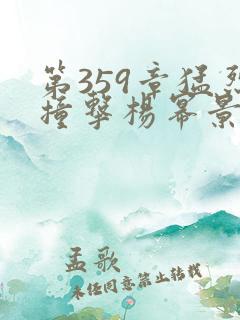 第359章猛烈
撞撃楊幂景
孟歌
未经同意禁止转载